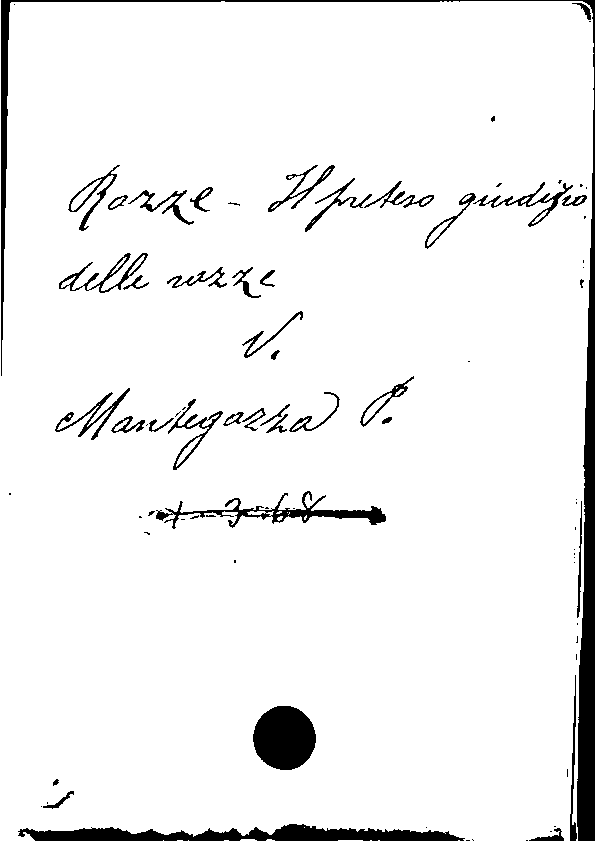 Razze - Il preteso giudizio
delle razze
V.
Mantegazza P.
1368